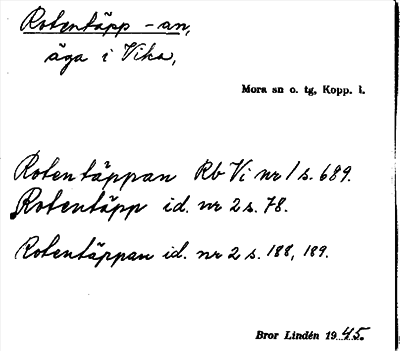 Rotentäpp -an,
äga i Vika,
Mora sn o. tg, Kopp. l.
Rotentäppan Rb Vi nr 1 s. 689.
Rotentäpp id. nr 2 s. 78.
Rotentäppan id. nr 2 s. 188, 189.
Bror Lindén 1945.